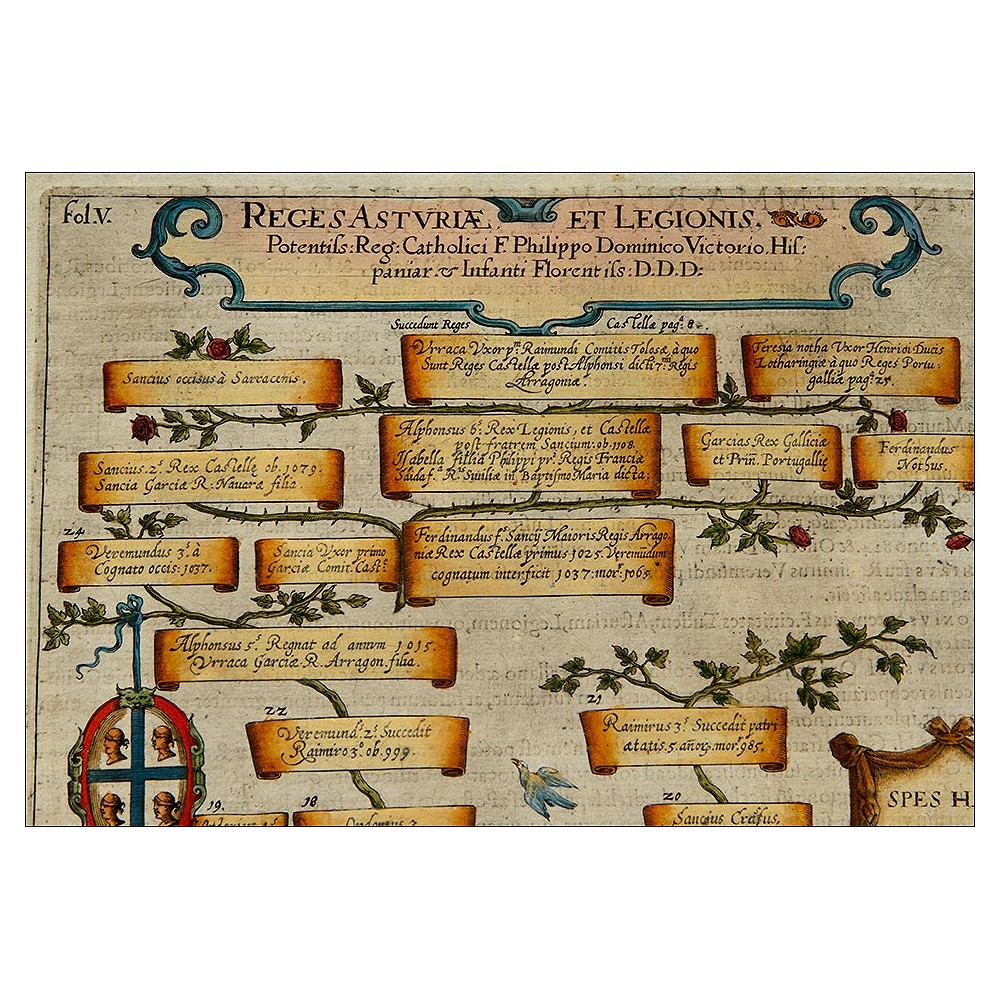 fol.V.
REGES ASTVRIÆ, ET LEGIONIS,
Potentiſs: Reg: Catholici F. Philippo Dominico Victorio. Hiſ:
paniar. & Infanti Florentiſs: D.D.D:
Succedunt Reges Castellæ pag.ª 8.
Vrraca Vxor p.m Raimundi Comitis Tolosæ, à quo
Sunt Reges Castellæ post Alphonsi dicti 7.mi Regis
Arragoniæ.
Teresia notha Vxor Henrici Ducis
Lotharingiæ à quo Reges Portu-
galliæ pag.ª 25.
Sancius occisus à Sarracenis.
Alphonsus 6.s Rex Legionis, et Castellæ
post fratrem Sancium: ob. 1108.
Isabella fillia Philippi pr.i Regis Franciæ
Saida f. R.s Suniliæ in Baptismo Maria dicta:
Garcias Rex Galliciæ
et Prin. Portugallię
Ferdinandus
Nothus.
Sancius. 2.s Rex Castellę ob. 1079.
Sancia Garciæ R: Nauaræ filia.
24
Veremundus 3.s à
Cognato occis: 1037.
Sancia Vxor primo
Garciæ Comit. Cast.ę
Ferdinandus f. Sancij Maioris Regis Arrago.
niæ Rex Castellæ primus 1025. Veremundum
cognatum interficit 1037: mor.r 1065.
Alphonsus 5.s Regnat ad annum 1015.
Vrraca Garciæ R. Arragon. filia.
22
Veremund.s 2.s Succedit
Raimiro 3.o ob. 999.
21
Raimirus 3.s Succedit patri
ætatis. 5. anor. mor.r 985.
19.
18
Ordonius 3
20
Sancius Crassus.
SPES H